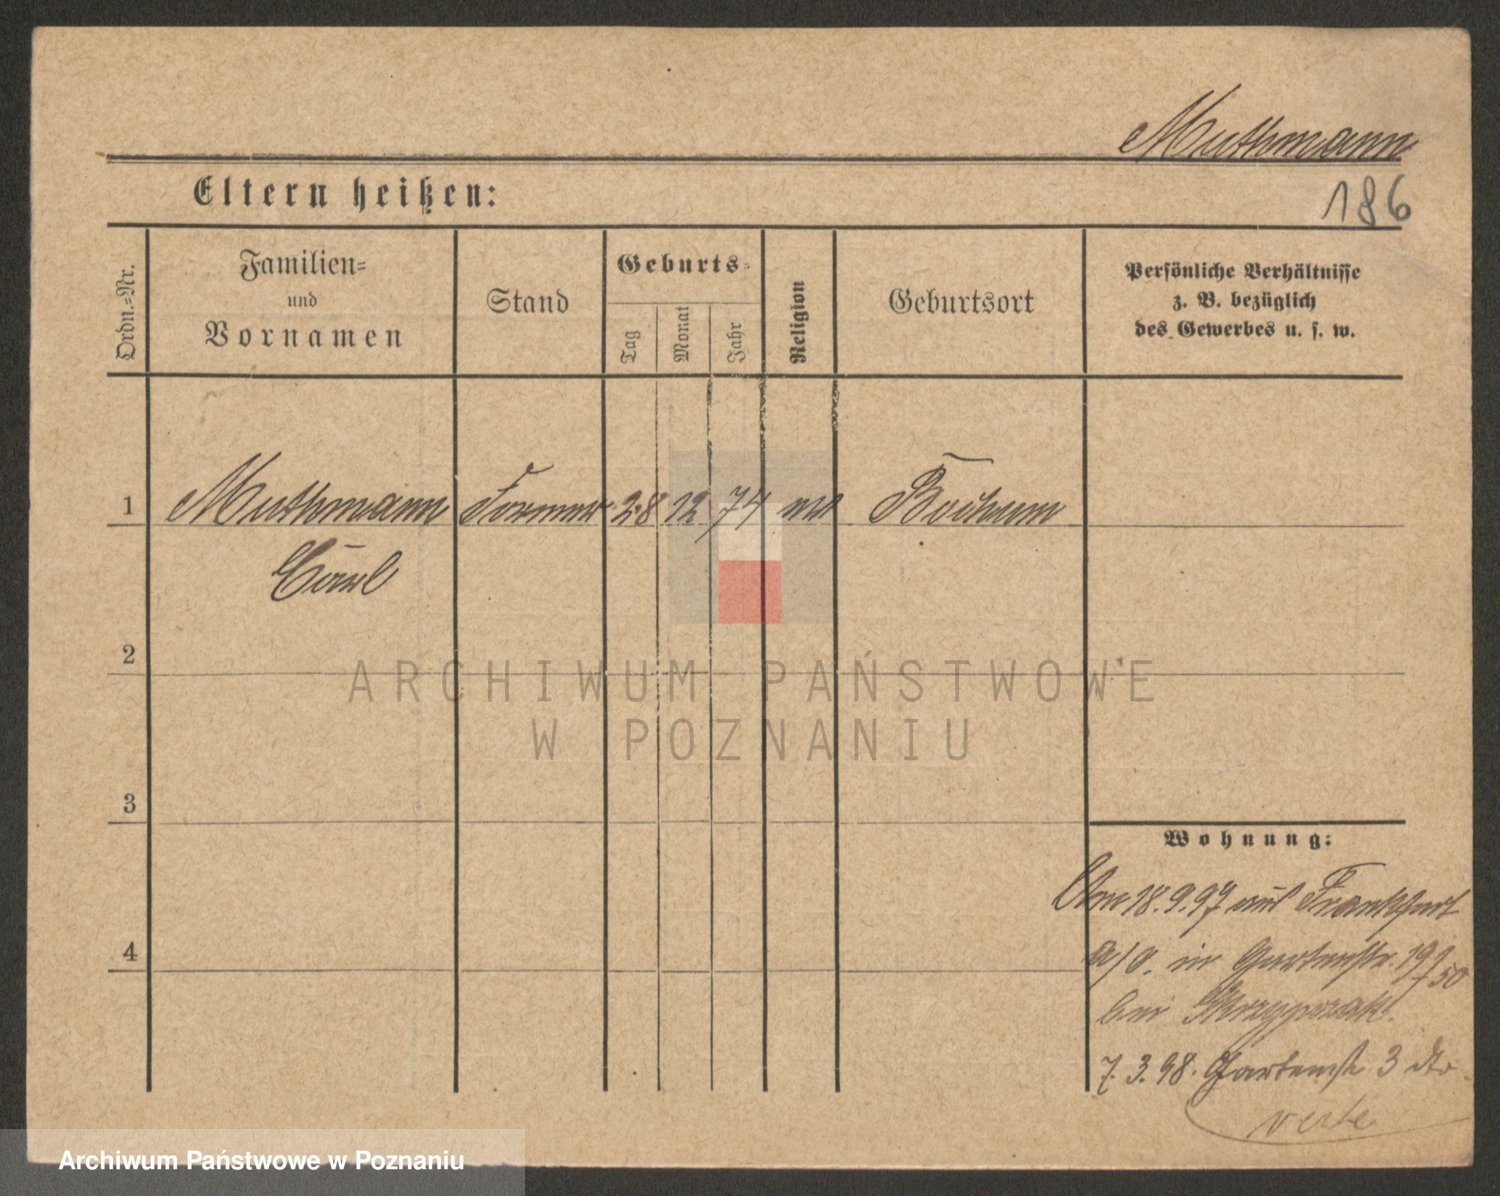 Muthmann
Eltern heißen:
186
Ordn.=Nr.
Familien=
und
Vornamen
Stand
Geburts=
Tag
Monat
Jahr
Religion
Geburtsort
Persönliche Verhältnisse
z. B. bezüglich
des Gewerbes u. s. w.
1 Muthmann Former 28 12 74 Bochum
Carl
2
ARCHIWUM PAŃSTWOWE
W POZNANIU
3
Wohnung:
Am 18.9.97 aus Frankfurt
a/O. in Gartenstr. 19
50
bei Skrzypczak
4
7.3.98. Gartenstr 3 dto
verte
Archiwum Państwowe w Poznaniu